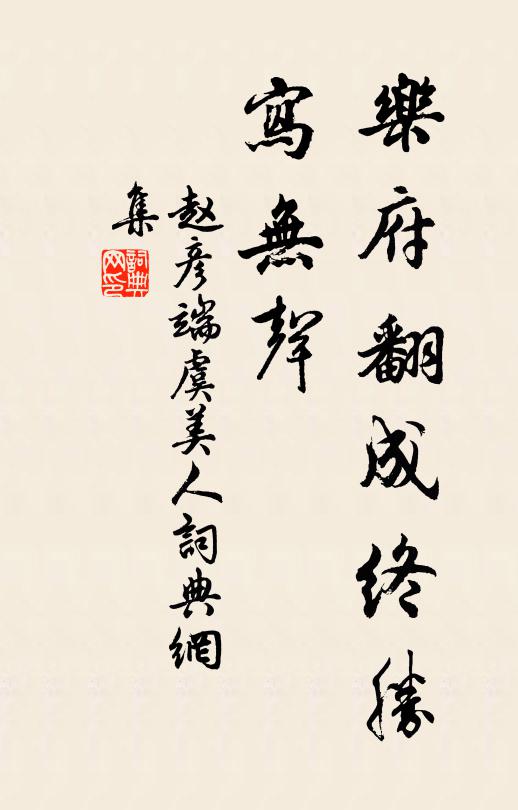 樂府翻成終勝
寫無聲
赵彦端虞美人詞典網
集
詞典
网印